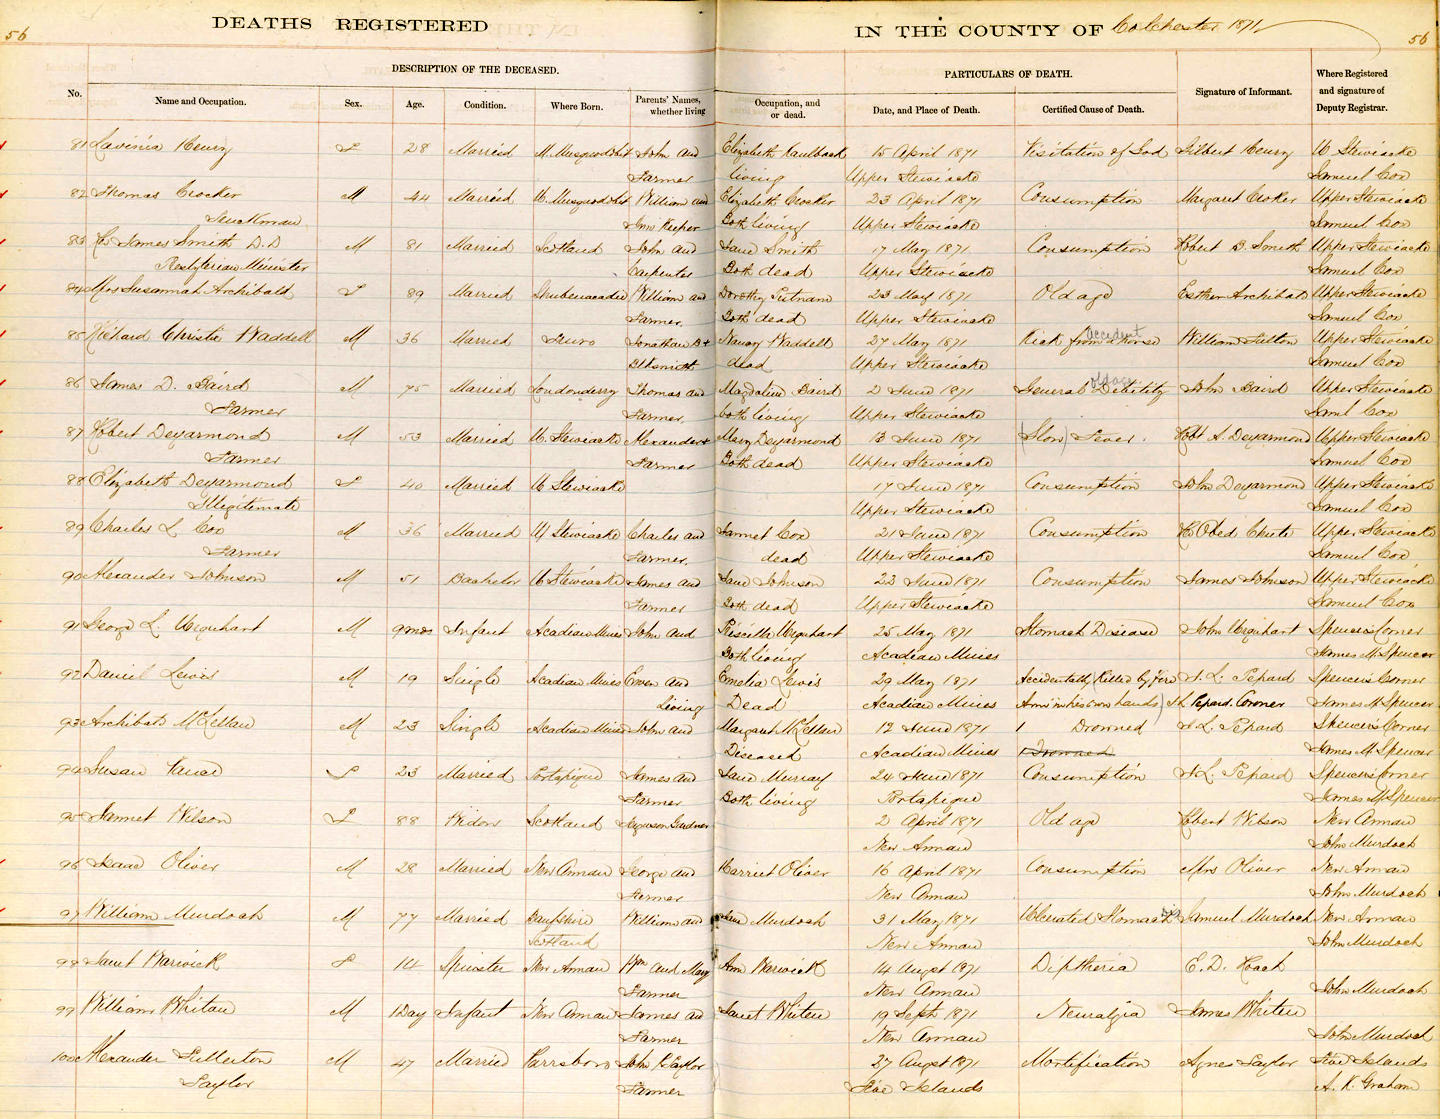 56 DEATHS REGISTERED IN THE COUNTY OF Colchester 1871 56
DESCRIPTION OF THE DECEASED. PARTICULARS OF DEATH.
No. Name and Occupation. Sex. Age. Condition. Where Born. Parents' Names, whether living Occupation, and or dead. Date, and Place of Death. Certified Cause of Death. Signature of Informant. Where Registered and signature of Deputy Registrar.
81 Lavinia Henry F 28 Married M. Musquodobit John and Elizabeth Kaulback 15 April 1871 Visitation of God Gilbert Henry U Stewiacke
Farmer living Upper Stewiacke Samuel Cox
82 Thomas Crocker M 44 Married U. Musquodobit William and Elizabeth Crocker 23 April 1871 Consumption Margaret Croker Upper Stewiacke
Truckman Inn Keeper Both living Upper Stewiacke Samuel Cox
83 Rev James Smith D.D M 81 Married Scotland John and Jane Smith 17 May 1871 Consumption Robert B Smith Upper Stewiacke
Presbyterian Minister Carpenter Both dead Upper Stewiacke Samuel Cox
84 Mrs Susannah Archibald F 89 Married Shubenacadie William and Dorothy Putnam 23 May 1871 Old age Esther Archibald Upper Stewiacke
Farmer. Both dead Upper Stewiacke Samuel Cox
85 Richard Christie Waddell M 36 Married Truro Jonathan B + Nancy Waddell 27 May 1871 Kick from a horse accident William Fulton Upper Stewiacke
Blksmith dead Upper Stewiacke Samuel Cox
86 James D. Baird M 75 Married Londonderry Thomas and Magdaline Baird 2 June 1871 General Debility old age John Baird Upper Stewiacke
Farmer Farmer, both living Upper Stewiacke Saml Cox
87 Robert Deyarmond M 53 Married U. Stewiacke Alexander + Mary Deyarmond 13 June 1871 (Slow) Fever. Robt A. Deyarmond Upper Stewiacke
Farmer Farmer Both dead Upper Stewiacke Samuel Cox
88 Elizabeth Deyarmond F 40 Married U Stewiacke 17 June 1871 Consumption John Deyarmond Upper Stewiacke
Illigitemate Upper Stewiacke Samuel Cox
89 Charles L Cox M 36 Married U Stewiacke Charles and Jannet Cox 21 June 1871 Consumption Upper Stewiacke
Farmer Farmer. dead Upper Stewiacke Samuel Cox
90 Alexander Johnson M 51 Bachelor U Stewiacke James and Jane Johnson 23 June 1871 Consumption James Johnson Upper Stewiacke
Farmer Both dead Upper Stewiacke Samuel Cox
91 George L. Urquhart M 9mos Infant Acadian Mines John and Priscilla Urquhart 25 May 1871 Stomach Disease John Urquhart Spencers Corner
Both living Acadian Mines James M. Spencer
92 Daniel Lewis M 19 Single Acadian Mines Emen and Emelia Lewis 29 May 1871 Accidentally (Killed by Fire J. L. Pepard Spencers Corner
Living Dead Acadian Mines Arms in his own hands) Pepard. Coroner James M. Spencer
93 Archibald McLellan M 23 Single Acadian Mines John and Margaret McLellan 12 June 1871 1 Drowned J. L. Pepard Spencers Corner
Diseased Acadian Mines 1 Drowned James M. Spencer
94 Susan F 23 Married Portapique James and Jane Murray 24 June 1871 Consumption J. L. Pepard Spencers Corner
Farmer Both living Portapique James M. Spencer
95 Jannet Wilson F 88 Widow Scotland Ferguson Gardner 2 April 1871 Old age Robert Wilson New Annan
New Annan John Murdoch
96 Isaac Oliver M 28 Married New Annan George and Harriet Oliver 16 April 1871 Consumption Mrs Oliver New Annan
Farmer New Annan John Murdoch
97 William Murdoch M 77 Married Banffshire William and Jane Murdoch 31 May 1871 Ulcerated Stomach Samuel Murdoch New Annan
Scotland New Annan John Murdoch
98 Janet Warwick F 14 Spinster New Annan Wm and Mary Ann Warwick 14 Augst 1871 Diptheria E. D. Roach
Farmer New Annan John Murdoch
99 William Whitan M 1 Day Infant New Annan James and Janet Whiten 19 Sept 1871 Neuralgia James Whiten
Farmer New Annan John Murdoch
100 Alexander Fullerton M 47 Married Parrsboro John K Taylor 27 Augst 1871 Mortification Agnes Taylor Five Islands
Taylor Farmer Five Islands A. K. Graham